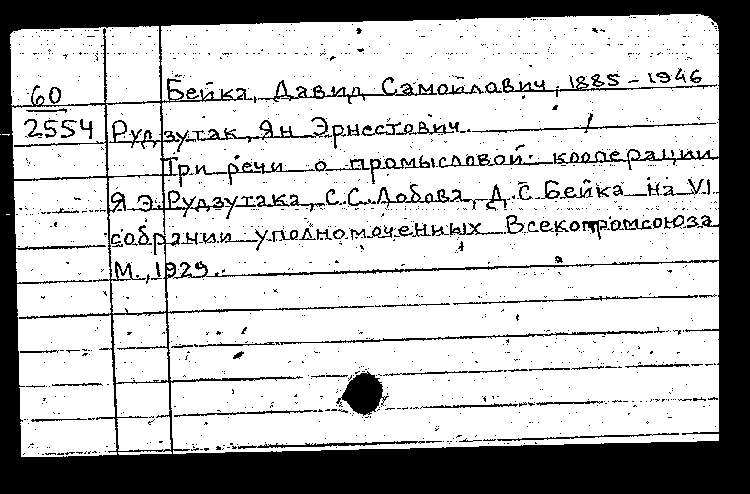 Бейка, Давид Самойлович, 1885-1946
60
2554 Рудзутак, Ян Эрнестович.
Три речи о промысловой кооперации
Я.Э.Рудзутака, С.С.Лобова, Д.С Бейка на VI
собрании уполномоченных Всекопромсоюза
М., 1929.